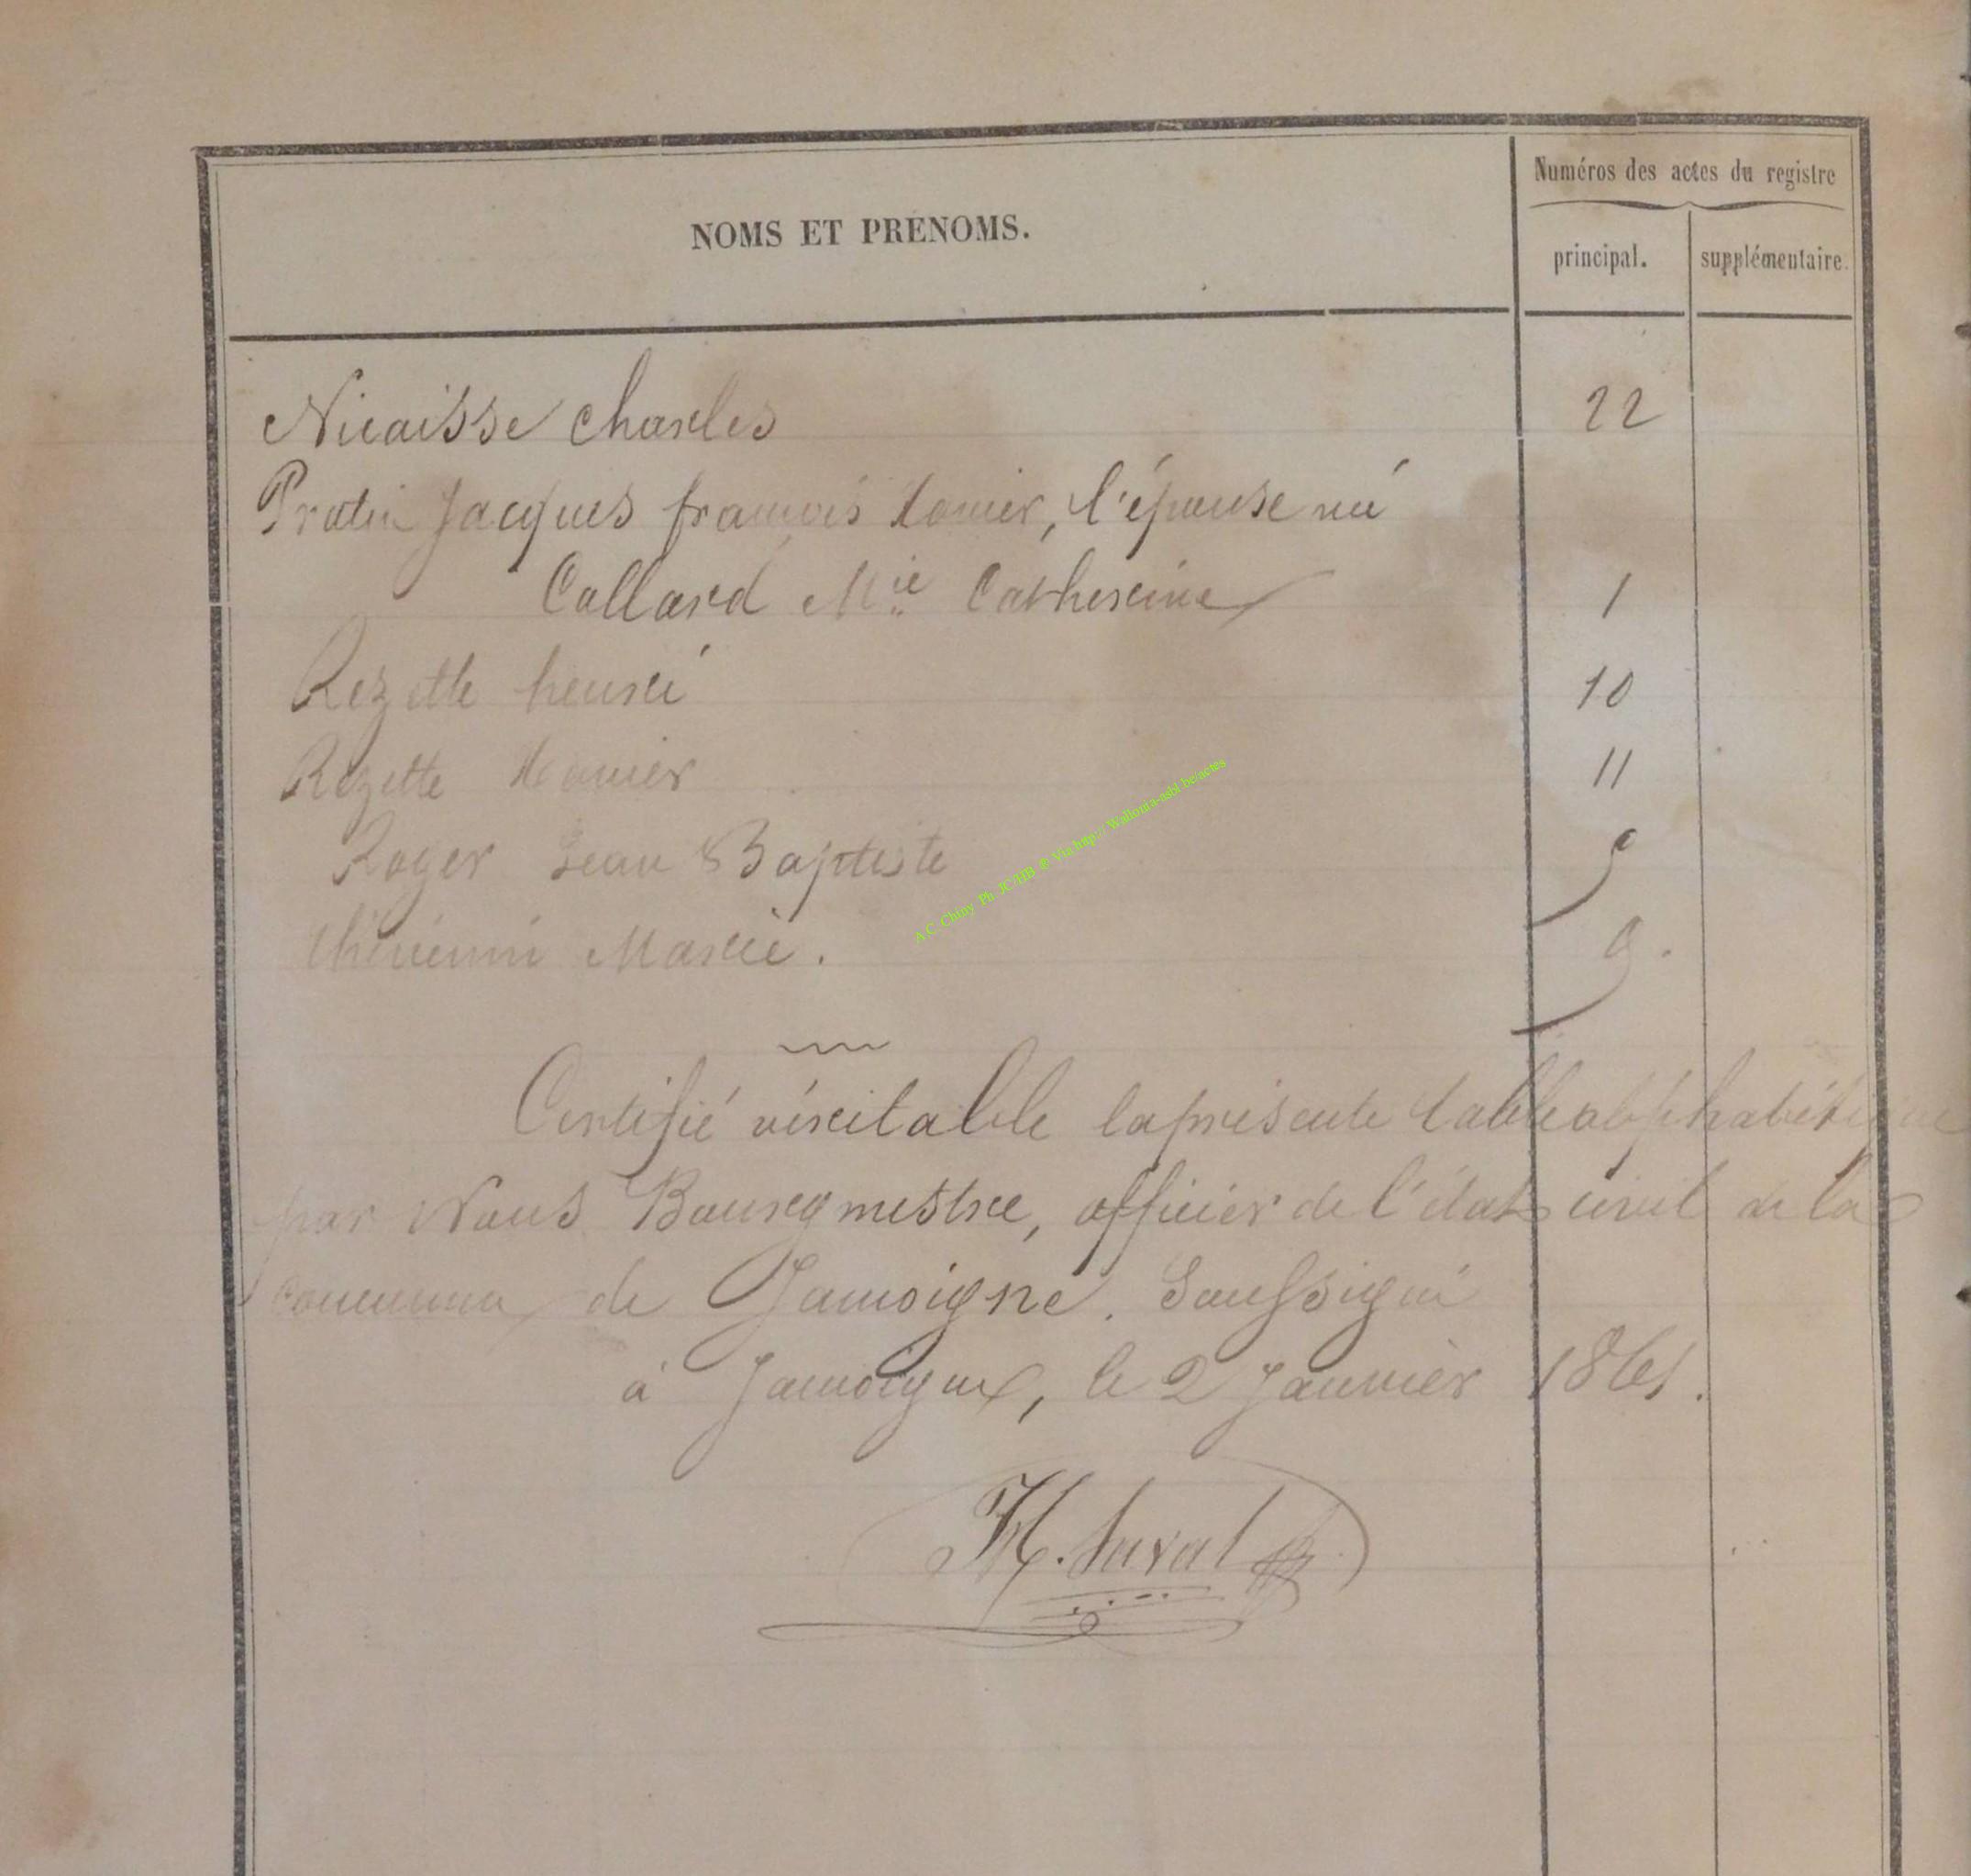 Numéros des actes du registre
NOMS ET PRÉNOMS.
principal. supplémentaire.
Nicaisse Charles 22
Pratin Jacques françois Xavier, l'épouse née
Collard Mie Catherine 1
Rezette henri 10
Rezette Xavier 11
Roger Jean Baptiste 9
Marie. 9.
Certifié véritable la présente table alphabétique
par Nous Bourgmestre, officier de l'état civil de la
commune de Jamoigne. Soussigné
à Jamoigne, le 2 Janvier 1861.
A.C. Chiny Ph. JC/HB & Via http:// Wallonia-asbl.be/actes